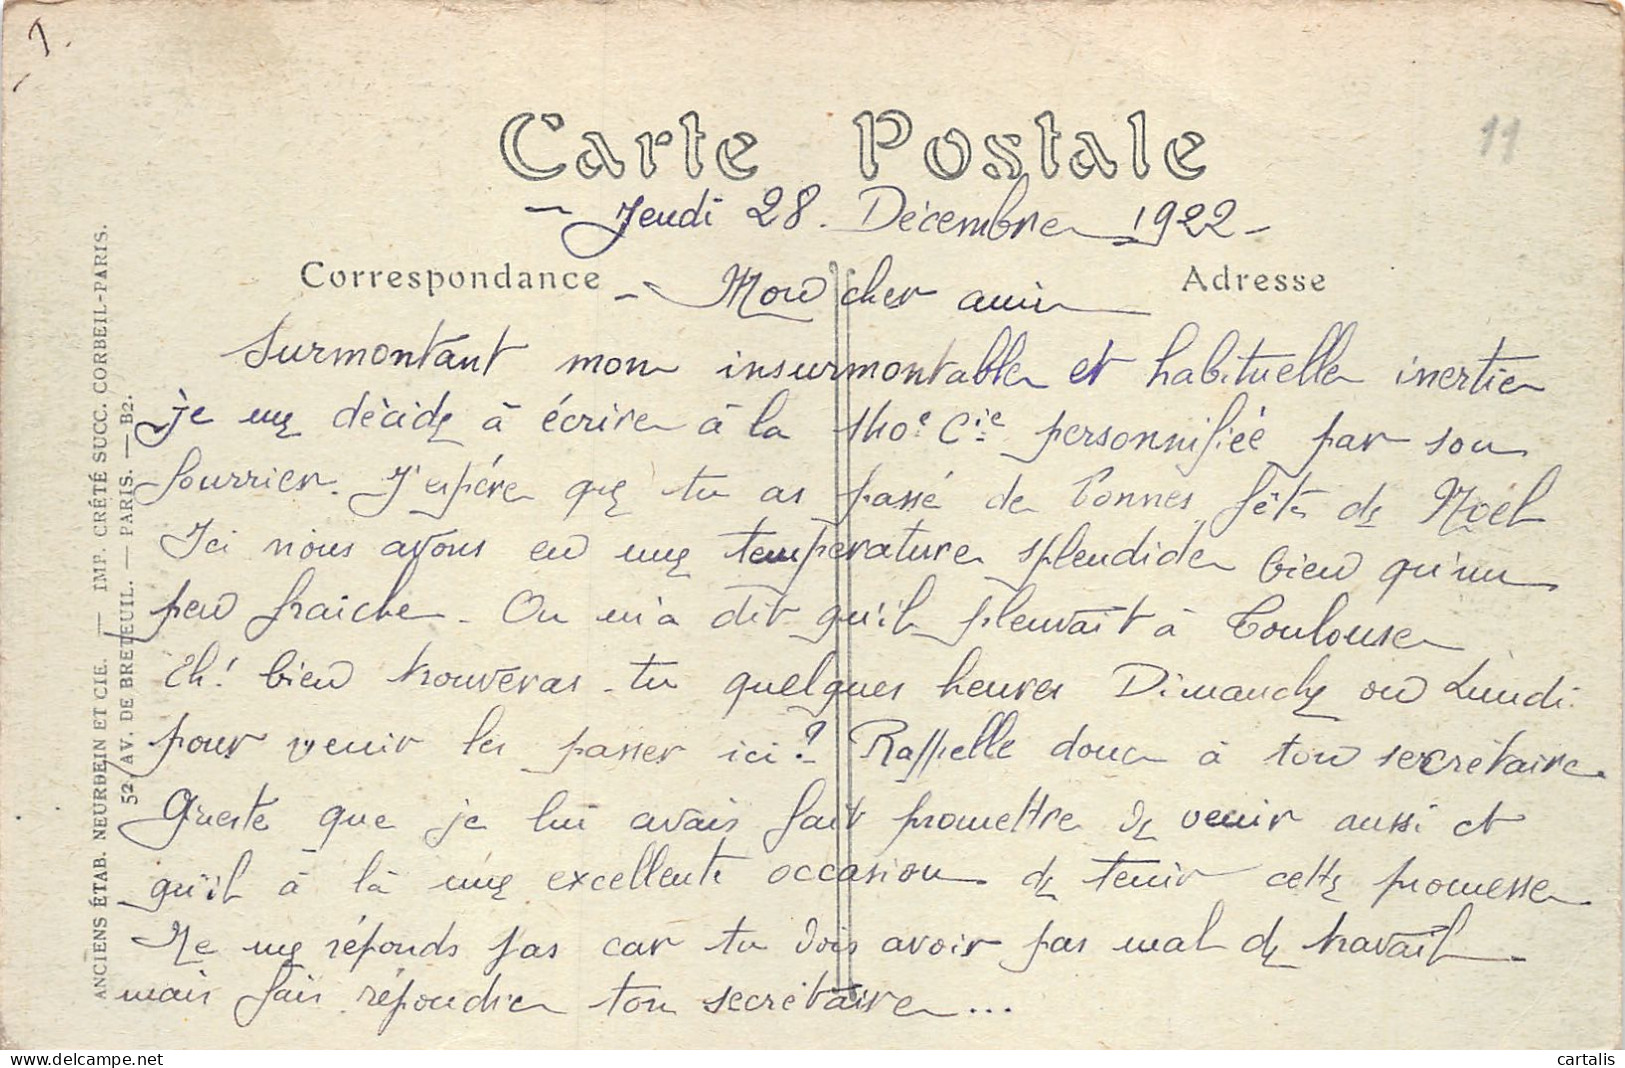 1.
11
Carte Postale
Jeudi 28 Décembre 1922 -
Correspondance
Adresse
- Mon cher ami
Surmontant mon insurmontable et habituelle inertie
je me décide à écrire à la 140e Cie personnifiée par son
fourrier. J'espère que tu as passé de bonnes fête de Noël
Ici nous avons eu une température splendide bien qu'un
peu fraiche. On m'a dit qu'il pleuvait à Toulouse
Eh! bien trouveras-tu quelques heures Dimanche ou Lundi
pour venir les passer ici? Rappelle donc à ton secrétaire
Queste que je lui avais fait promettre de venir aussi et
qu'il à là une excellente occasion de tenir cette promesse
Ne me réponds pas car tu dois avoir pas mal de travail
mais fais répondre ton secrétaire...
ANCIENS ÉTAB. NEURDEIN ET CIE. — IMP. CRÉTÉ SUCC. CORBEIL-PARIS.
52, AV. DE BRETEUIL. — PARIS. — B2.
delcampe.net
cartalis